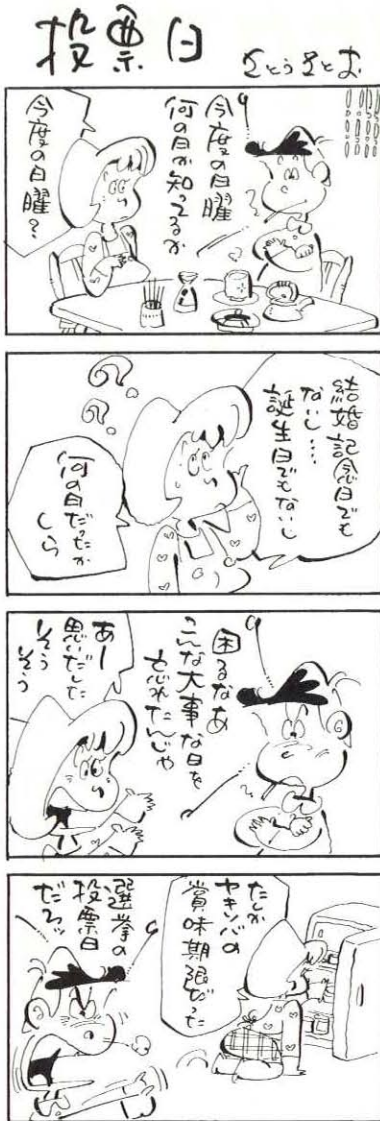 投票日
さとうさとお
今度の日曜
何の日か知ってるか
今度の日曜？
結婚記念日でも
ないし…
誕生日でもないし
何の日だったか
しら
困るなあ
こんな大事な日を
忘れたんじゃ
あー
思いだした
そうそう
たしか
ヤキソバの
賞味期限だった
選挙の
投票日
だろッ